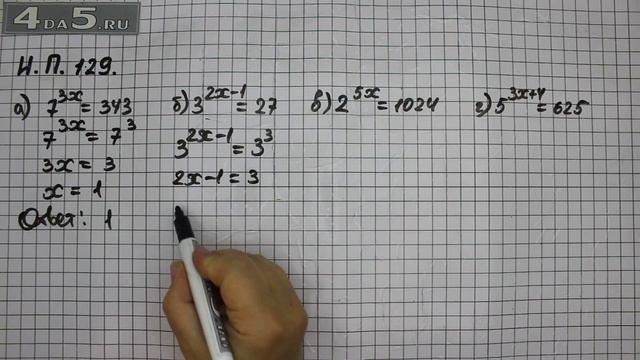 4DA5.RU
Н.П. 129.
а) 7^3x = 343
7^3x = 7^3
3x = 3
x = 1
Ответ: 1
б) 3^2x-1 = 27
3^2x-1 = 3^3
2x-1 = 3
в) 2^5x = 1024
г) 5^3x+4 = 625